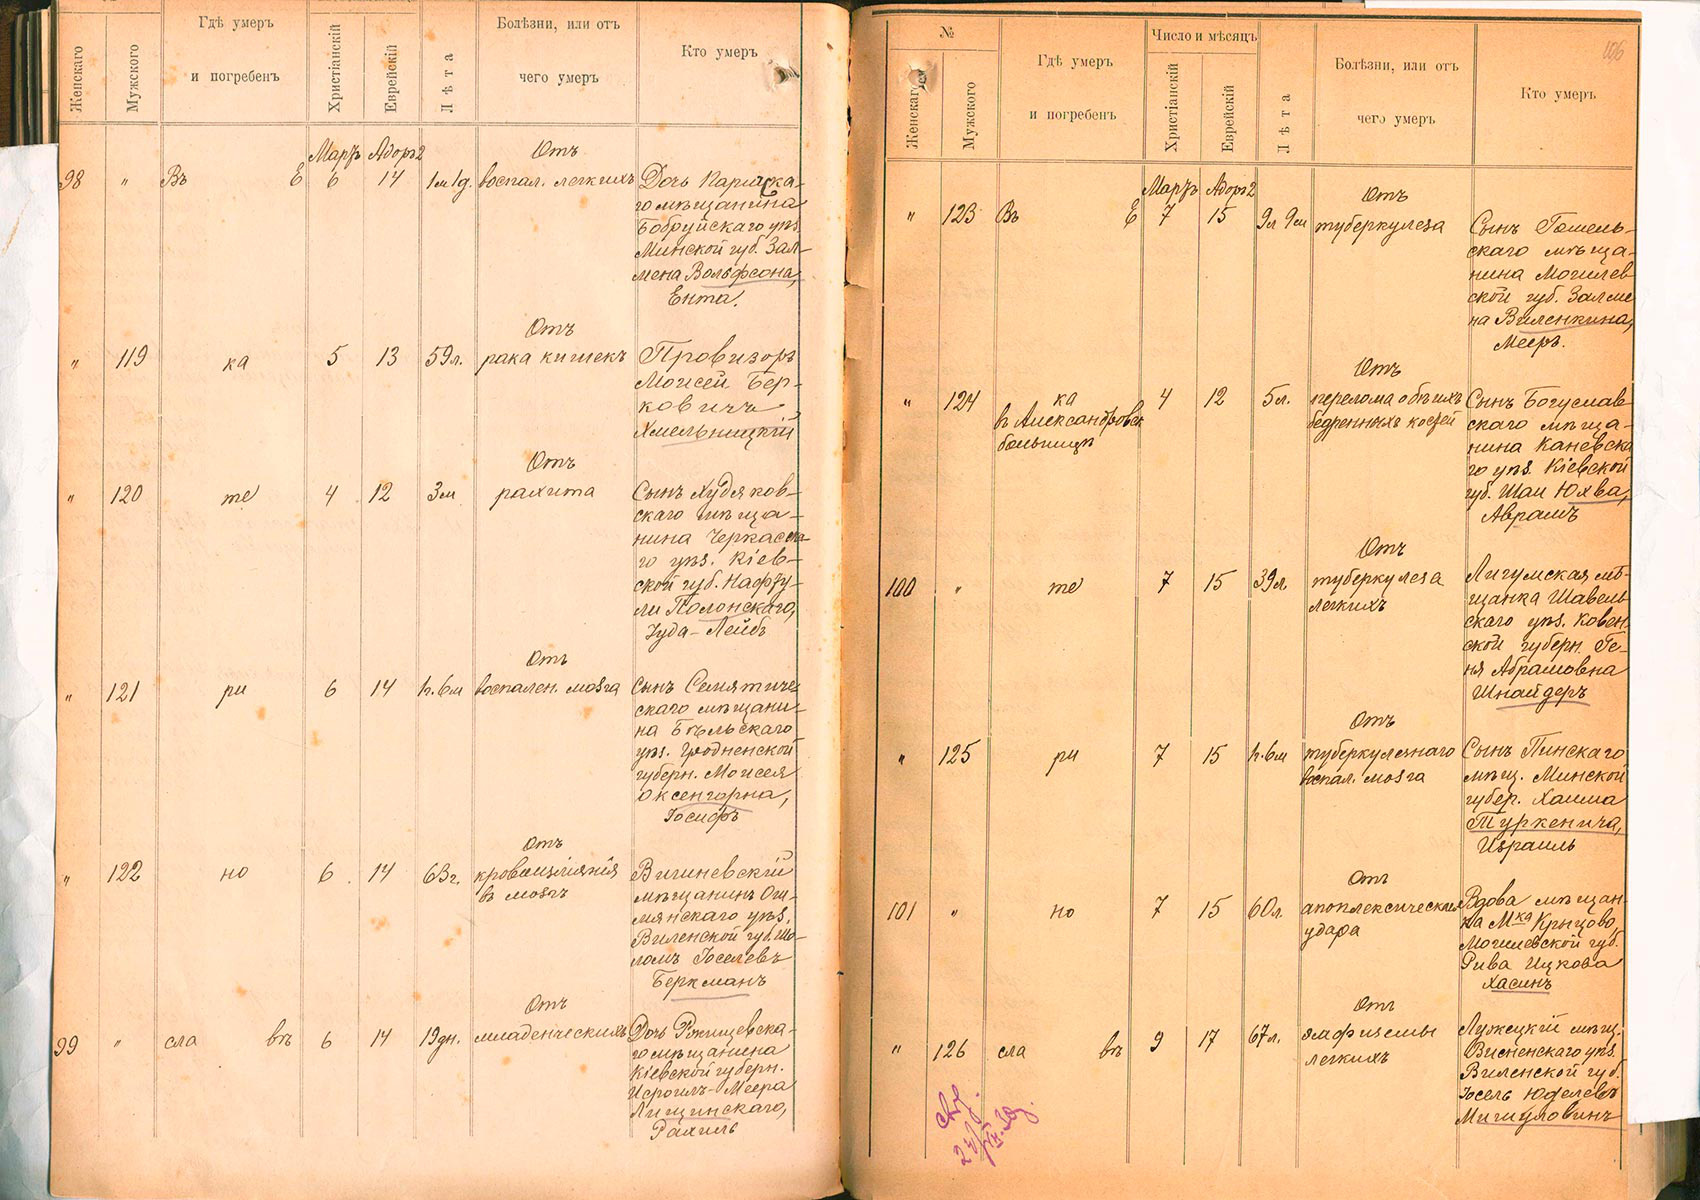 Женскаго
Мужского
Гдѣ умеръ
и погребенъ
Христіанскій
Еврейскій
Лѣта
Болѣзни, или отъ
чего умеръ
Кто умеръ
Мартъ Адоръ 2
Отъ
98 " Въ Е 6 14 1м 1д. воспал. легкихъ
Дочь
гомѣщанина
Бобруйскаго уѣз.
Минской губ. Зал-
мена Вольфсона,
Ента.
Отъ
" 119 ка 5 13 59л. рака кишекъ
Провизоръ
Моисей Бер-
ковичъ
Хмельницкій
Отъ
" 120 те 4 12 3м рахита
Сынъ Худяков-
скаго мѣща-
нина Черкасска-
го уѣз. Кіев-
ской губ. Нафту-
ли Полонскаго,
Іуда-Лейбъ
Отъ
" 121 ри 6 14 1г. 6м воспален. мозга
Сынъ Семятиче
скаго мѣщани-
на Бѣльскаго
уѣз. Гродненской
губерн. Моисея
Оксенгорна,
Іосифъ
Отъ
" 122 но 6 14 63г. кровоизліянія
въ мозгъ
Вишневскій
мѣщанинъ Ош-
мянскаго уѣз.
Виленской губ. Шо-
ломъ Іоселевъ
Беркманъ
Отъ
99 " сла въ 6 14 19дн. младенческихъ
Дочь Ржищевска-
гомѣщанина
Кіевской губерн.
Исроилъ-Меера
Лищинскаго,
Рахиль
106
№
Женскаго
Мужского
Гдѣ умеръ
и погребенъ
Число и мѣсяцъ
Христіанскій
Еврейскій
Лѣта
Болѣзни, или отъ
чего умеръ
Кто умеръ
Мартъ Адоръ 2
Отъ
" 123 Въ Е 7 15 9л 9м туберкулеза
Сынъ Гомель-
скаго мѣща-
нина Могилев
ской губ. Залме
на Виленкина,
Мееръ.
Отъ
" 124 ка 4 12 5л. перелома обѣихъ
въ Александровск
больницѣ
бедренныхъ костей
Сынъ Богуслав
скаго мѣща-
нина Каневска
го уѣз. Кіевской
губ. Шаи Юхва,
Аврамъ
Отъ
100 " те 7 15 39л. туберкулеза
легкихъ
Лигумская мѣ-
щанка Шавель
скаго уѣз. Ковен
ской губерн. Ге-
ня Абрамовна
Шнайдеръ
Отъ
" 125 ри 7 15 1г. 6м туберкулезнаго
воспал. мозга
Сынъ Пинскаго
мѣщ. Минской
губер. Хаима
Туркенича,
Израиль
Отъ
101 " но 7 15 60л. апоплексическаго
удара
Вдова мѣщан-
ка Мⷯка Крычово,
Могилевской губ.
Рива Ицкова
Хасинъ
Отъ
" 126 сла въ 9 17 67л. эмфиземы
легкихъ
Лужецкій мѣщ.
Виленской губ.
Мишуловинъ